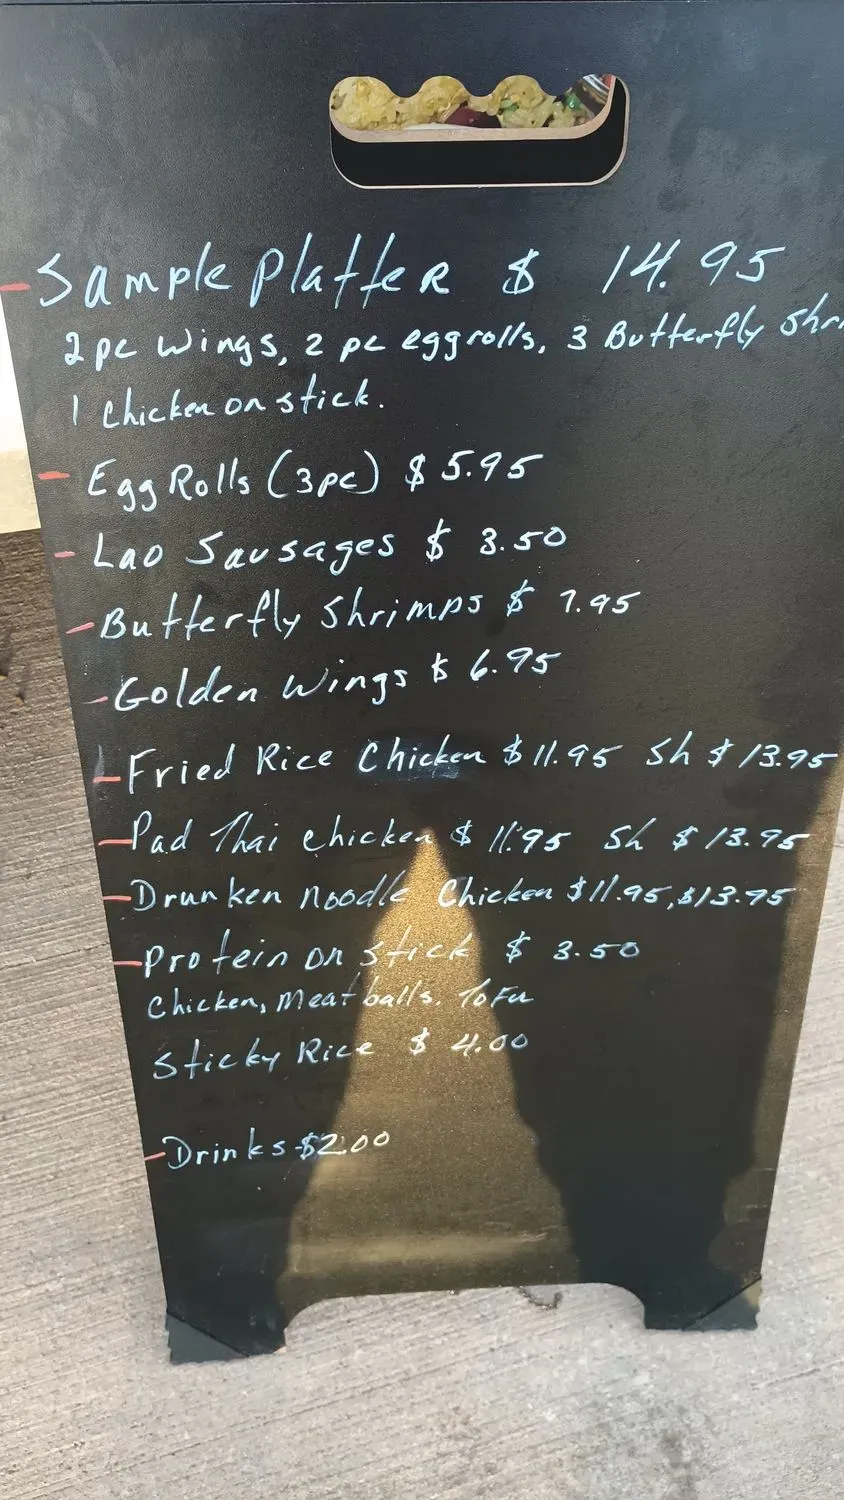 - Sample Platter $ 14.95
2 pc Wings, 2 pc eggrolls, 3 Butterfly
1 Chicken on stick.
- Egg Rolls (3pc) $ 5.95
- Lao Sausages $ 3.50
- Butterfly Shrimps $ 7.95
- Golden Wings $ 6.95
- Fried Rice Chicken $ 11.95 Sh $ 13.95
- Pad Thai Chicken $ 11.95 Sh $ 13.95
- Drunken noodle Chicken $ 11.95, $13.95
- Protein on stick $ 3.50
Chicken, Meatballs. Tofu
Sticky Rice $ 4.00
- Drinks $2.00